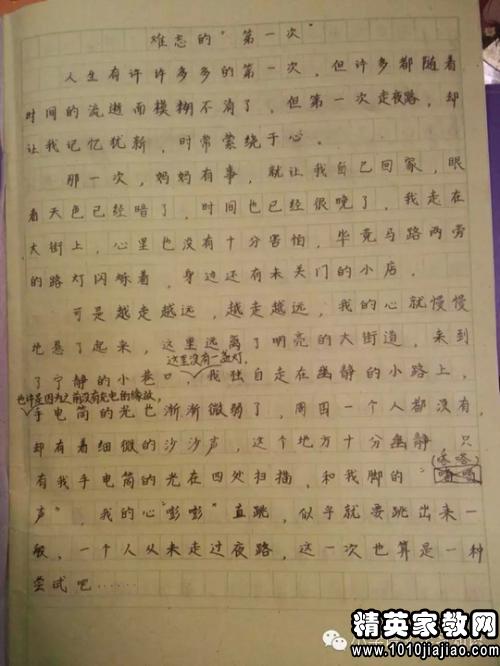 难忘的“第一次”
人生有许许多多的第一次，但许多都随着
时间的流逝而模糊不清了，但第一次走夜路，却
让我记忆犹新，时常萦绕于心。
那一次，妈妈有事，就让我自己回家，眼
看天色已经暗了，时间也已经很晚了，我走在
大街上，心里也没有十分害怕，毕竟马路两旁
的路灯闪烁着，身边还有未关门的小店。
可是越走越远，越走越远，我的心就慢慢
地悬了起来，这里远离了明亮的大街道，来到
这里没有一盏灯，
了宁静的小巷口，我独自走在幽静的小路上，
也许是因为之前没有充电的缘故，
手电筒的光也渐渐微弱了，周围一个人都没有，
却有着细微的沙沙声，这个地方十分幽静，只
有我手电筒的光在四处扫描，和我脚的“
（嗒嗒）
声”，我的心“嘭嘭”直跳，似乎就要跳出来一
般，一个人从未走过夜路，这一次也算是一种
尝试吧……
精英家教网
www.1010jiajiao.com